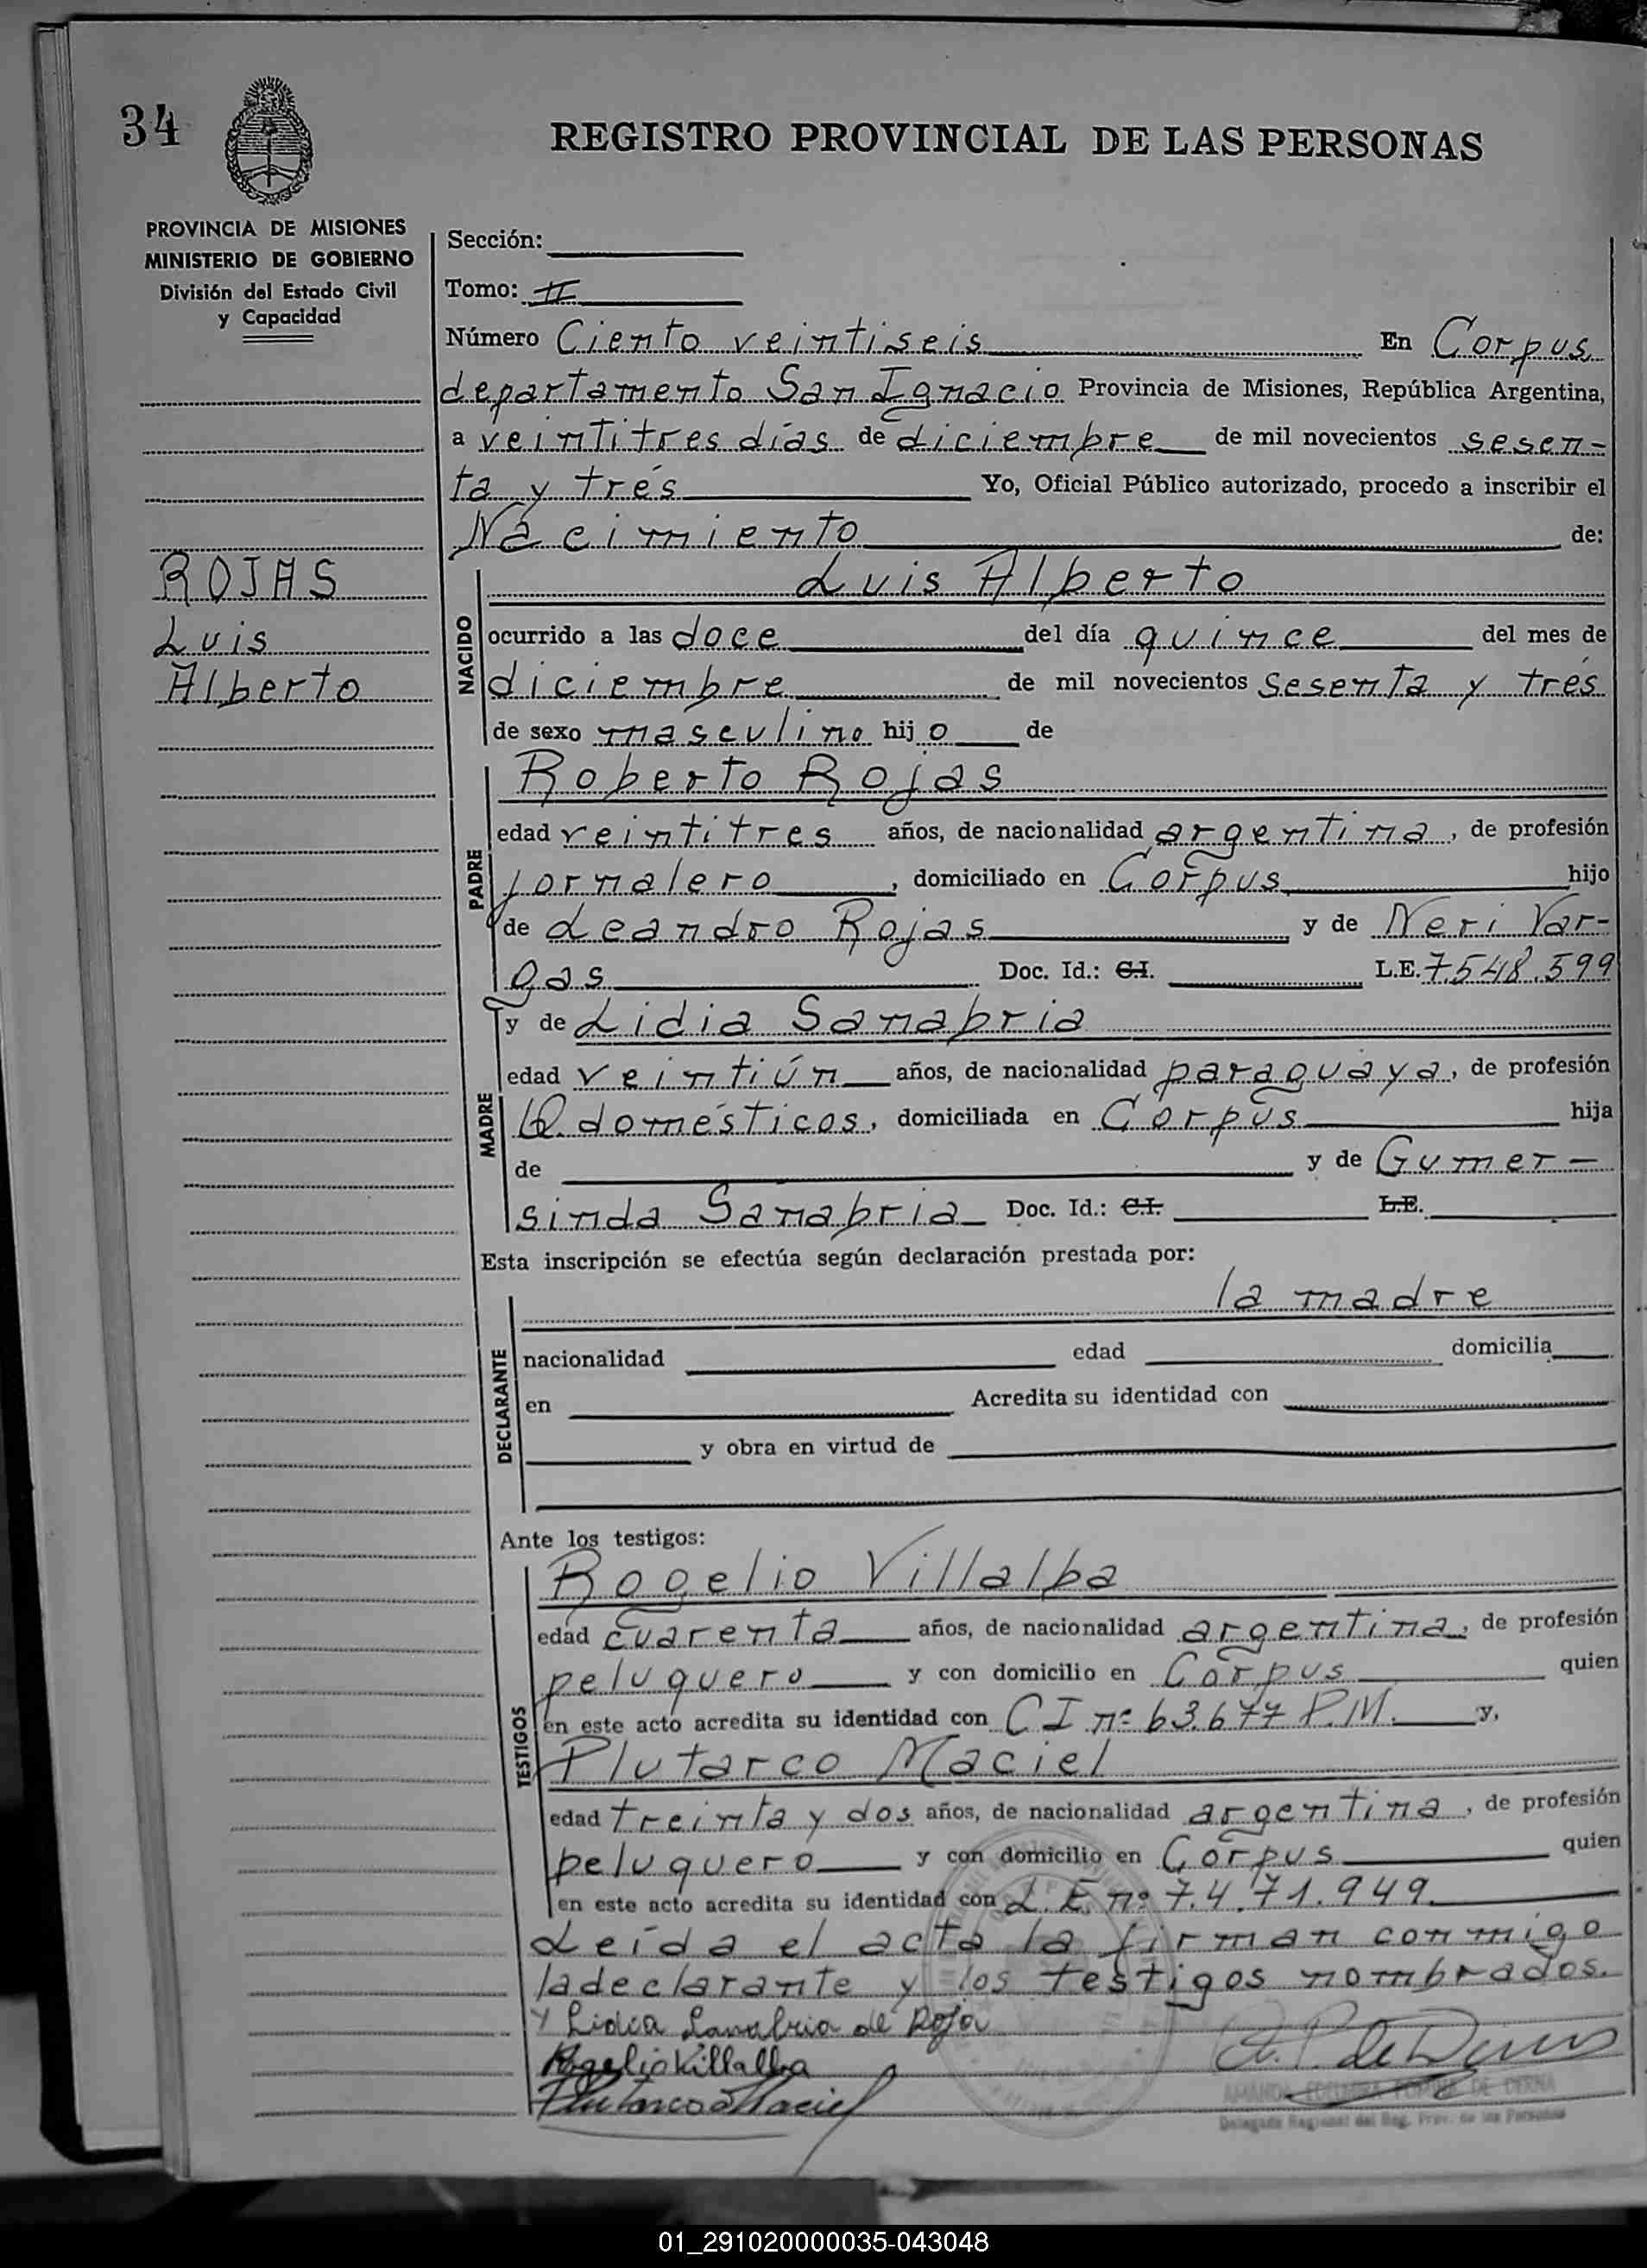 34
REGISTRO PROVINCIAL DE LAS PERSONAS
PROVINCIA DE MISIONES
MINISTERIO DE GOBIERNO
División del Estado Civil
y Capacidad
ROJAS
Luis
Alberto
Sección:
Tomo: II
Número Ciento veintiseis En Corpus
departamento San Ignacio Provincia de Misiones, República Argentina,
a veintitres días de diciembre de mil novecientos sesen-
ta y trés Yo, Oficial Público autorizado, procedo a inscribir el
Nacimiento de:
NACIDO
Luis Alberto
ocurrido a las doce del día quince del mes de
diciembre de mil novecientos sesenta y trés
de sexo masculino hijo de
PADRE
Roberto Rojas
edad veintitres años, de nacionalidad argentina, de profesión
jornalero, domiciliado en Corpus hijo
de Leandro Rojas y de Neri Var-
gas Doc. Id.: C.I. L.E. 7.548.599
MADRE
y de Lidia Sanabria
edad veintiún años, de nacionalidad paraguaya, de profesión
Q. domésticos, domiciliada en Corpus hija
de y de Gumer-
sinda Sanabria Doc. Id.: C.I. L.E.
Esta inscripción se efectúa según declaración prestada por:
DECLARANTE
la madre
nacionalidad edad domicilia
en Acredita su identidad con
y obra en virtud de
Ante los testigos:
TESTIGOS
Rogelio Villalba
edad cuarenta años, de nacionalidad argentina, de profesión
peluquero y con domicilio en Corpus quien
en este acto acredita su identidad con CI nº 63.677 P.M. y,
Plutarco Maciel
edad treinta y dos años, de nacionalidad argentina, de profesión
peluquero y con domicilio en Corpus quien
en este acto acredita su identidad con L.E. nº 7.471.949.
Leída el acta la firman conmigo
la declarante y los testigos nombrados.
Lidia Sanabria de Roja
Rogelio Villalba
Plutarco Maciel
AMANDA DE
Delegada Regional del Reg. Prov. de las Personas
01_291020000035-043048